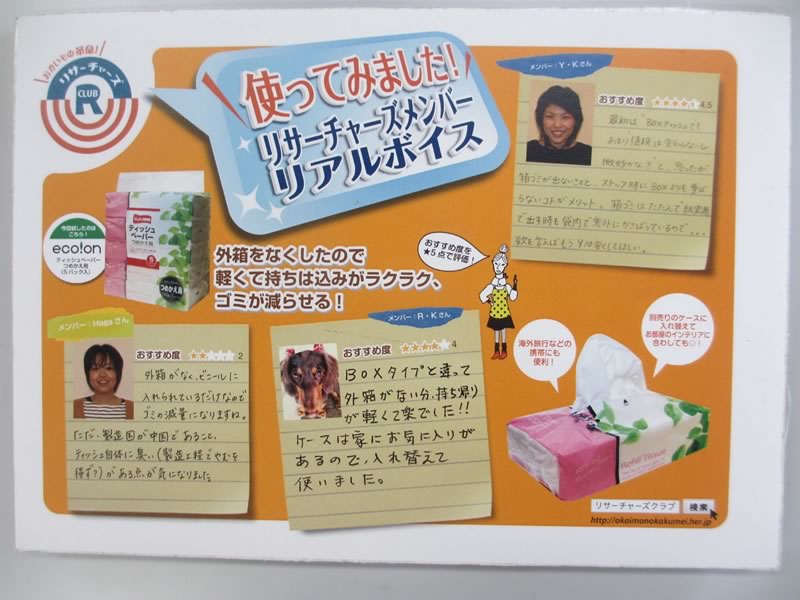 おかいもの革命!
リサーチャーズ
CLUB
R
使ってみました!
リサーチャーズメンバー
リアルボイス
メンバー:Y・Kさん
おすすめ度 ★★★★ 4.5
最初は"BOXティッシュでも
あまり値段は変わらないし
微妙かな?"と、思ったが
箱ゴミが出ないことと、ストック時にBOXよりも重ば
らないコトがメリット。箱ゴミはたたんで紙袋
で出す時も袋内で意外にかさばっているので…
欲を言えばもう¥10安くしてほしい。
今回試したのは
こちら!
eco!on
ティッシュペーパー
つめかえ用
(5パック入)
ティッシュ
ペーパー
つめかえ用
5
つめかえ用
外箱をなくしたので
軽くて持ちは込みがラクラク、
ゴミが減らせる!
おすすめ度を
★5点で評価!
メンバー:Hagaさん
おすすめ度 ★★☆☆☆ 2
外箱がなく、ビニールに
入れられているだけなので
ゴミの減量になりますね。
ただ、製造国が中国であること、
ティッシュ自体に臭い(製造工程でやむを
得ず?)がある点が気になりました
メンバー:R・Kさん
おすすめ度 ★★★★☆ 4
BOXタイプと違って
外箱がない分、持ち帰り
が軽くて楽でした!!
ケースは家にお気に入りが
あるので、入れ替えて
使いました。
海外旅行などの
携帯にも
便利!
別売りのケースに
入れ替えて
お部屋のインテリアに
合わしても◎!
Refill Tissue
リサーチャーズクラブ 検索
http://okaimonokakumei.her.jp